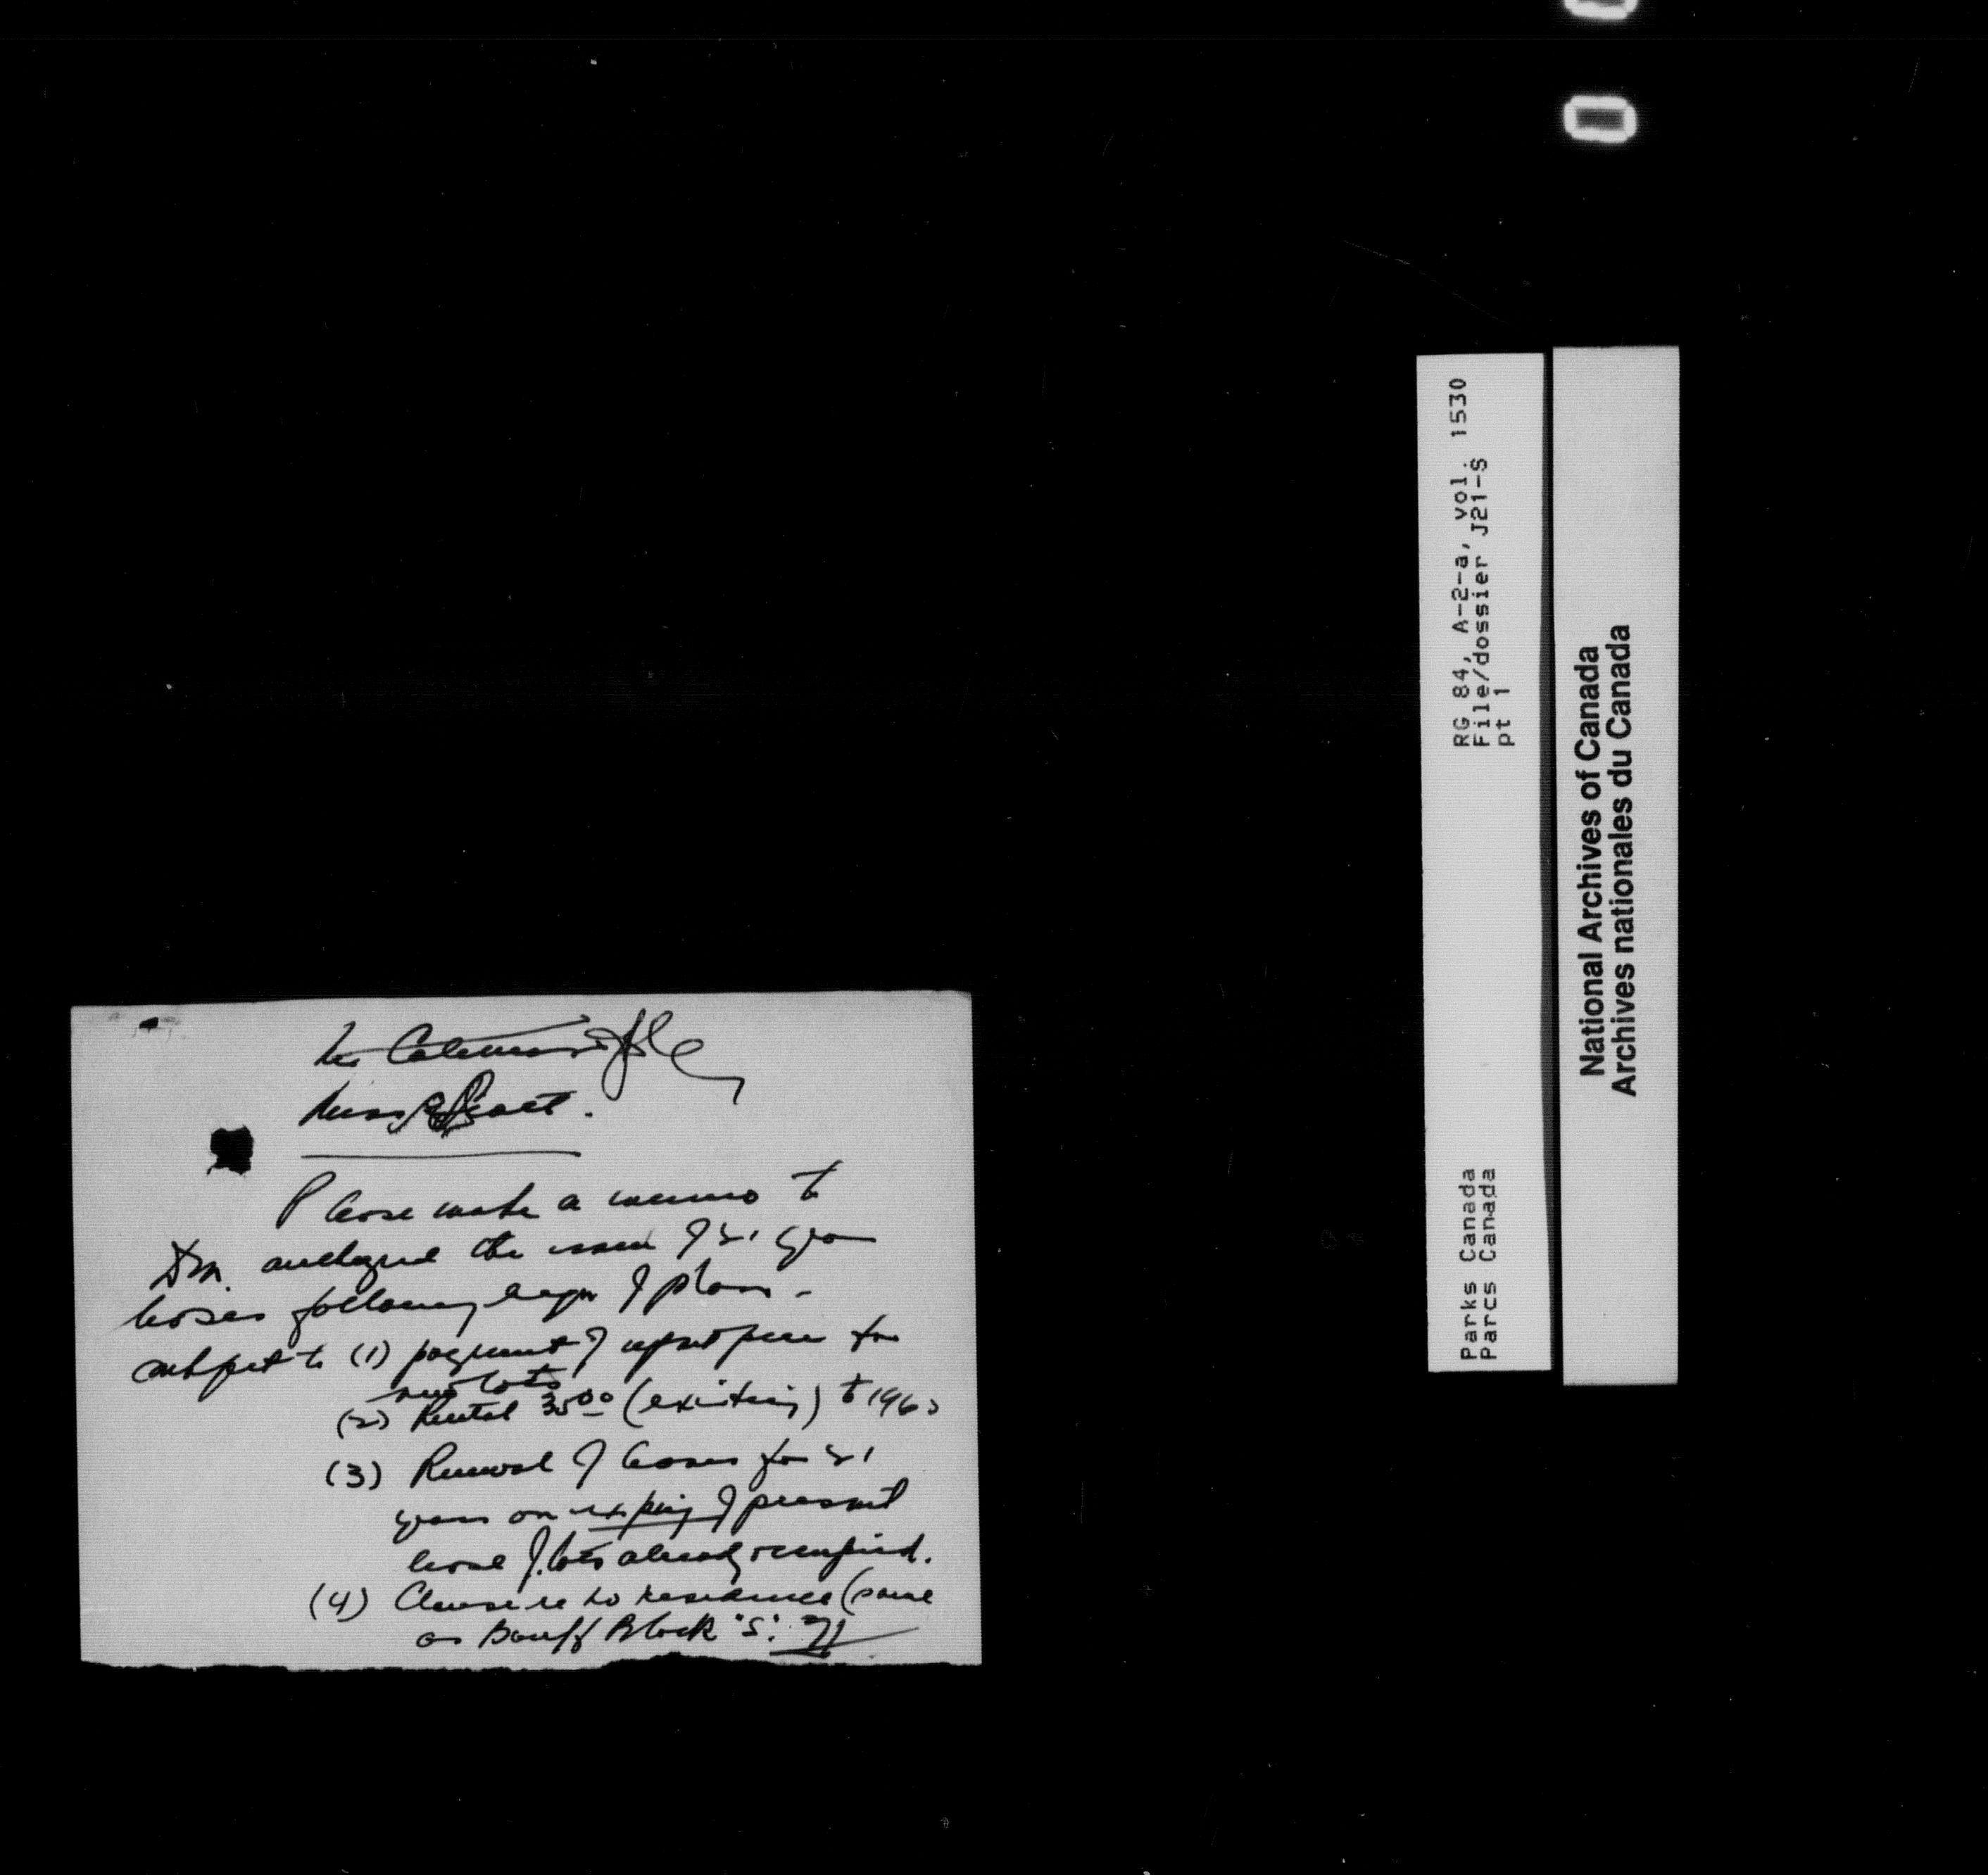 Mr Coleman
Miss
Please make a memo to
D.M. the issue of 21 year
leases following of plan -
subject to (1) payment of upset price for
new lots
(2) Rental 35⁰⁰ (existing) to 1960
(3) Renewal of leases for 21
years on expiry of present
lease of lots already occupied.
(4) Clause re to residence (same
as Banff Block "S".
RG 84, A-2-a, vol. 1530
File/dossier J21-S
pt 1
Parks Canada
Parcs Canada
National Archives of Canada
Archives nationales du Canada